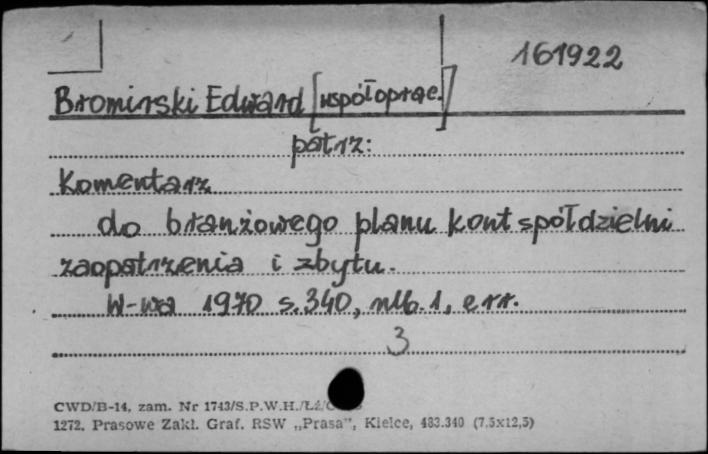 161922
Bromirski Edward [współoprac.]
patrz:
Komentarz
do branżowego planu kont spółdzielni
zaopatrzenia i zbytu.
W-wa 1970 s. 340, nlb. 1, err.
3
CWD/B-14, zam. Nr 1743/S.P.W.H./Łź/
1272. Prasowe Zakł. Graf. RSW „Prasa", Kielce, 483.340 (7,5x12,5)